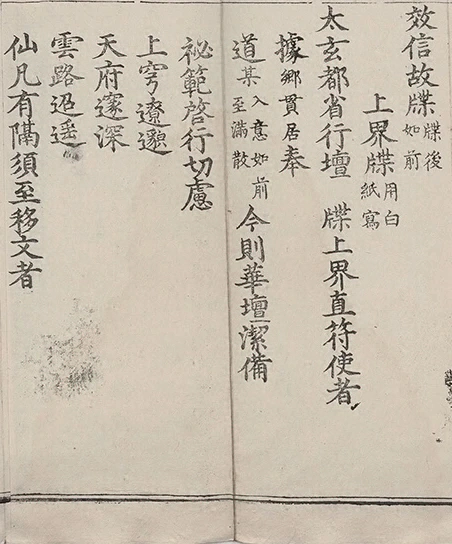 效信故牒牒後如前
上界牒用白紙寫
太玄都省行壇 牒上界直符使者
據鄉貫居奉
道某入意如前至滿散 今則華壇潔備
祕範啓行切慮
上穹遼邈
天府邃深
雲路迢遥
仙凡有隔須至移文者